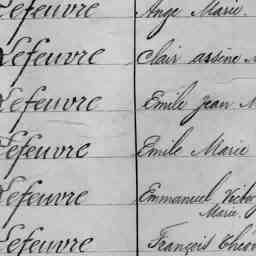 Lefeuvre Ange Marie
Lefeuvre Clair assène
Lefeuvre Emile Jean M
Lefeuvre Emile Marie
Lefeuvre Emmanuel Victor
Marie
Lefeuvre François Théo